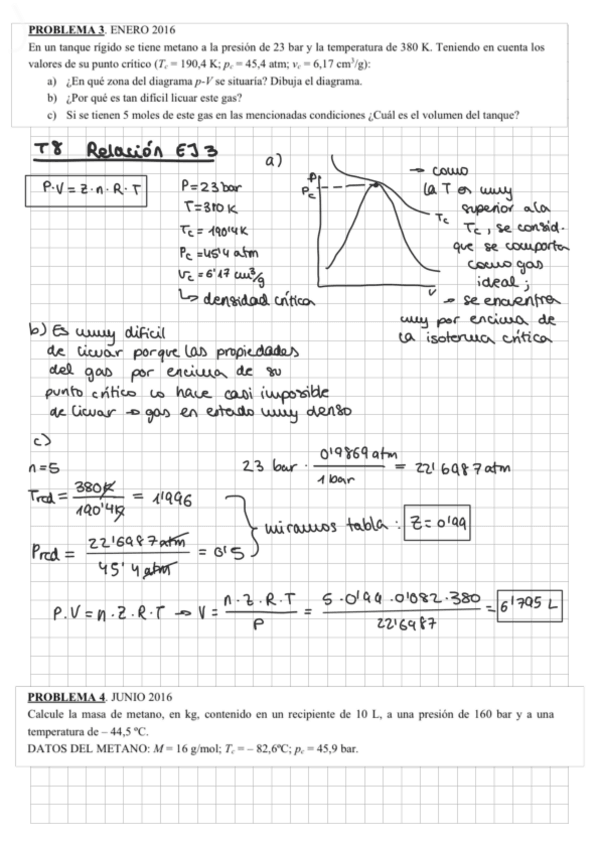 PROBLEMA 3. ENERO 2016
En un tanque rígido se tiene metano a la presión de 23 bar y la temperatura de 380 K. Teniendo en cuenta los
valores de su punto crítico (Tc = 190,4 K; pc = 45,4 atm; vc = 6,17 cm³/g):
a) ¿En qué zona del diagrama p-V se situaría? Dibuja el diagrama.
b) ¿Por qué es tan difícil licuar este gas?
c) Si se tienen 5 moles de este gas en las mencionadas condiciones ¿Cuál es el volumen del tanque?
T8 Relación EJ3
a)
P·V = Z·n·R·T
P = 23 bar
T = 380 K
Tc = 190'4 K
Pc = 45'4 atm
Vc = 6'17 cm³/g
↳ densidad crítica
P
Pc
Tc
V
→ como
la T es muy
superior a la
Tc, se consid-
que se comporta
como gas
ideal;
→ se encuentra
muy por encima de
la isoterma crítica
b) Es muy difícil
de licuar porque las propiedades
del gas por encima de su
punto crítico lo hace casi imposible
de licuar → gas en estado muy denso
c)
n = 5
23 bar · 0'9869 atm / 1 bar = 22'6987 atm
Tred = 380 K / 190'4 K = 1'996
Pred = 22'6987 atm / 45'4 atm = 0'5
miramos tabla : Z = 0'99
P.V = n·Z·R·T → V = n·Z·R·T / P = 5·0'99·0'082·380 / 22'6987 = 6'795 L
PROBLEMA 4. JUNIO 2016
Calcule la masa de metano, en kg, contenido en un recipiente de 10 L, a una presión de 160 bar y a una
temperatura de – 44,5 ºC.
DATOS DEL METANO: M = 16 g/mol; Tc = – 82,6ºC; pc = 45,9 bar.